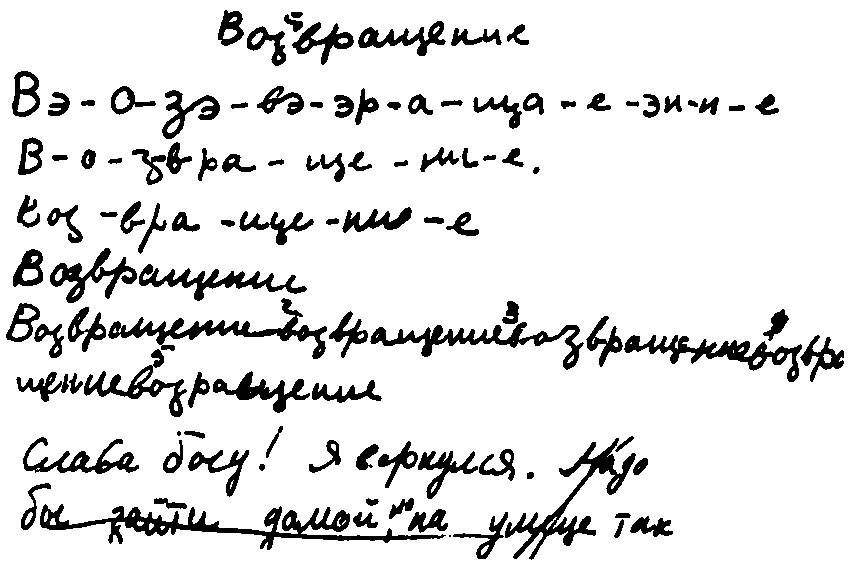 Возвращение
Вэ-О-зэ-вэ-эр-а-ща-е-эн-и-е
В-о-звра-ще-ни-е.
Воз-вра-ще-ние-е
Возвращение
Возвращение возвращение возвращение возвра
щениевозращение
Слава богу! Я вернулся. Надо
бы зайти домой, на улице так